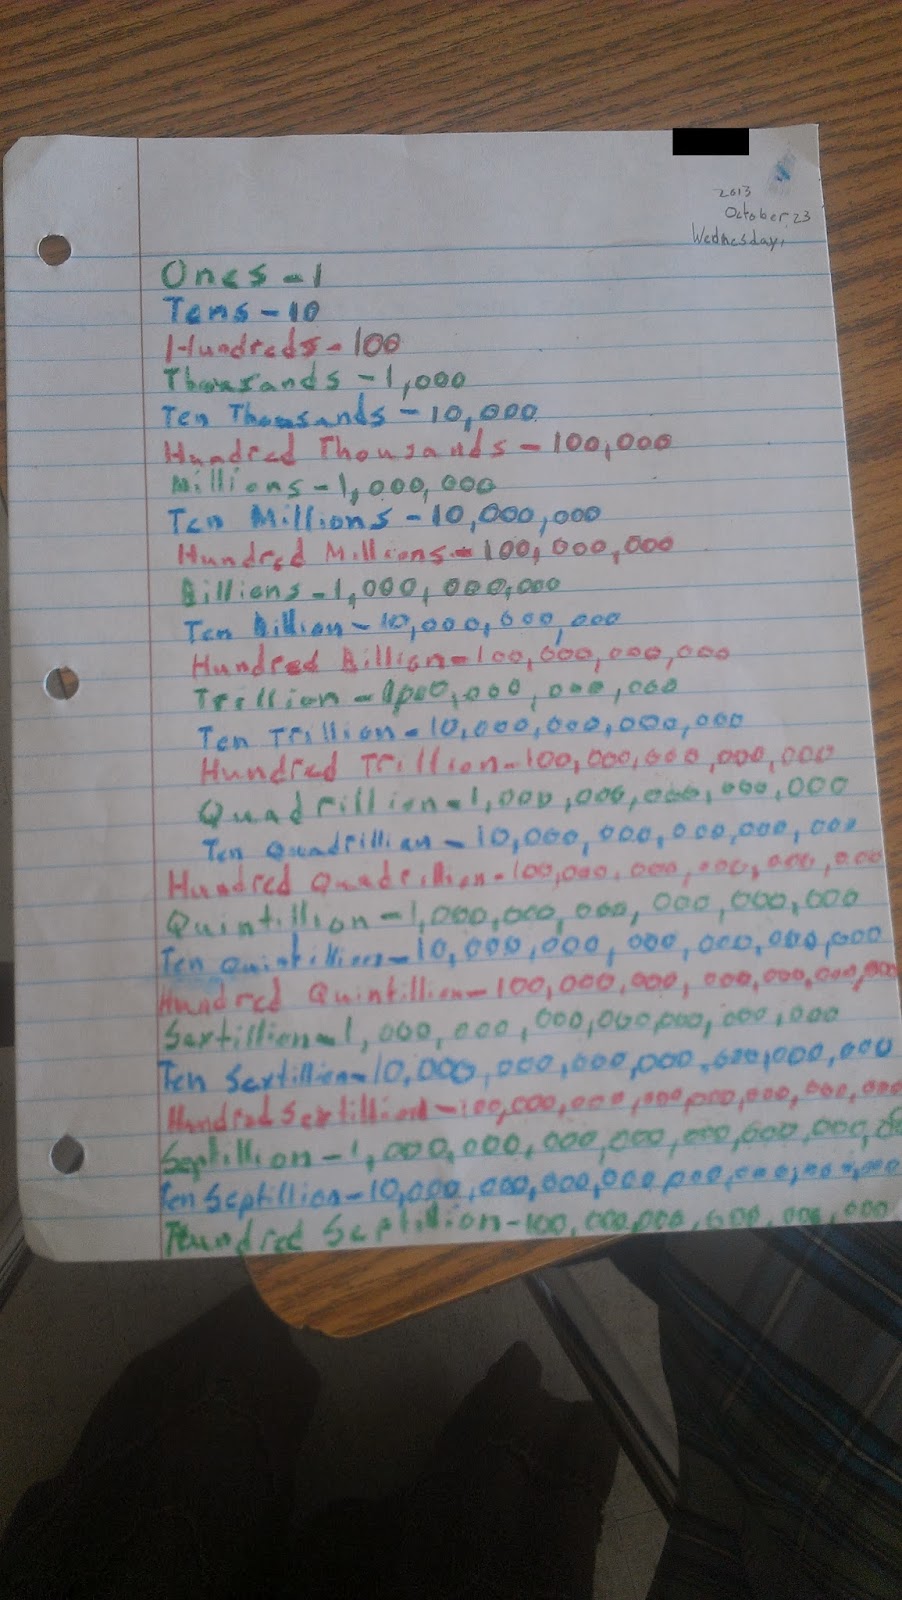 2013
October 23
Wednesday,
Ones - 1
Tens - 10
Hundreds - 100
Thousands - 1,000
Ten Thousands - 10,000
Hundred Thousands - 100,000
Millions - 1,000,000
Ten Millions - 10,000,000
Hundred Millions - 100,000,000
Billions - 1,000,000,000
Ten Billion - 10,000,000,000
Hundred Billion - 100,000,000,000
Trillion - 000,000,000,000
Ten Trillion - 10,000,000,000,000
Hundred Trillion - 100,000,000,000,000
Quadrillion - 1,000,000,000,000,000
Ten Quadrillian - 10,000,000,000,000,000
Hundred Quadrillion - 100,000,000,000,000,000
Quintillion - 1,000,000,000,000,000,000
Ten Quintillion - 10,000,000,000,000,000,000
Hundred Quintillion - 100,000,000,000,000,000,000
Sextillion - 1,000,000,000,000,000,000,000
Ten Sextillion - 10,000,000,000,000,000,000,000
Hundred Sextillion - 100,000,000,000,000,000,000,000
Septillion - 1,000,000,000,000,000,000,000
Ten Septillion - 10,000,000,000,000,000,000,000,000
Hundred Septillion - 100,000,000,000,000,000